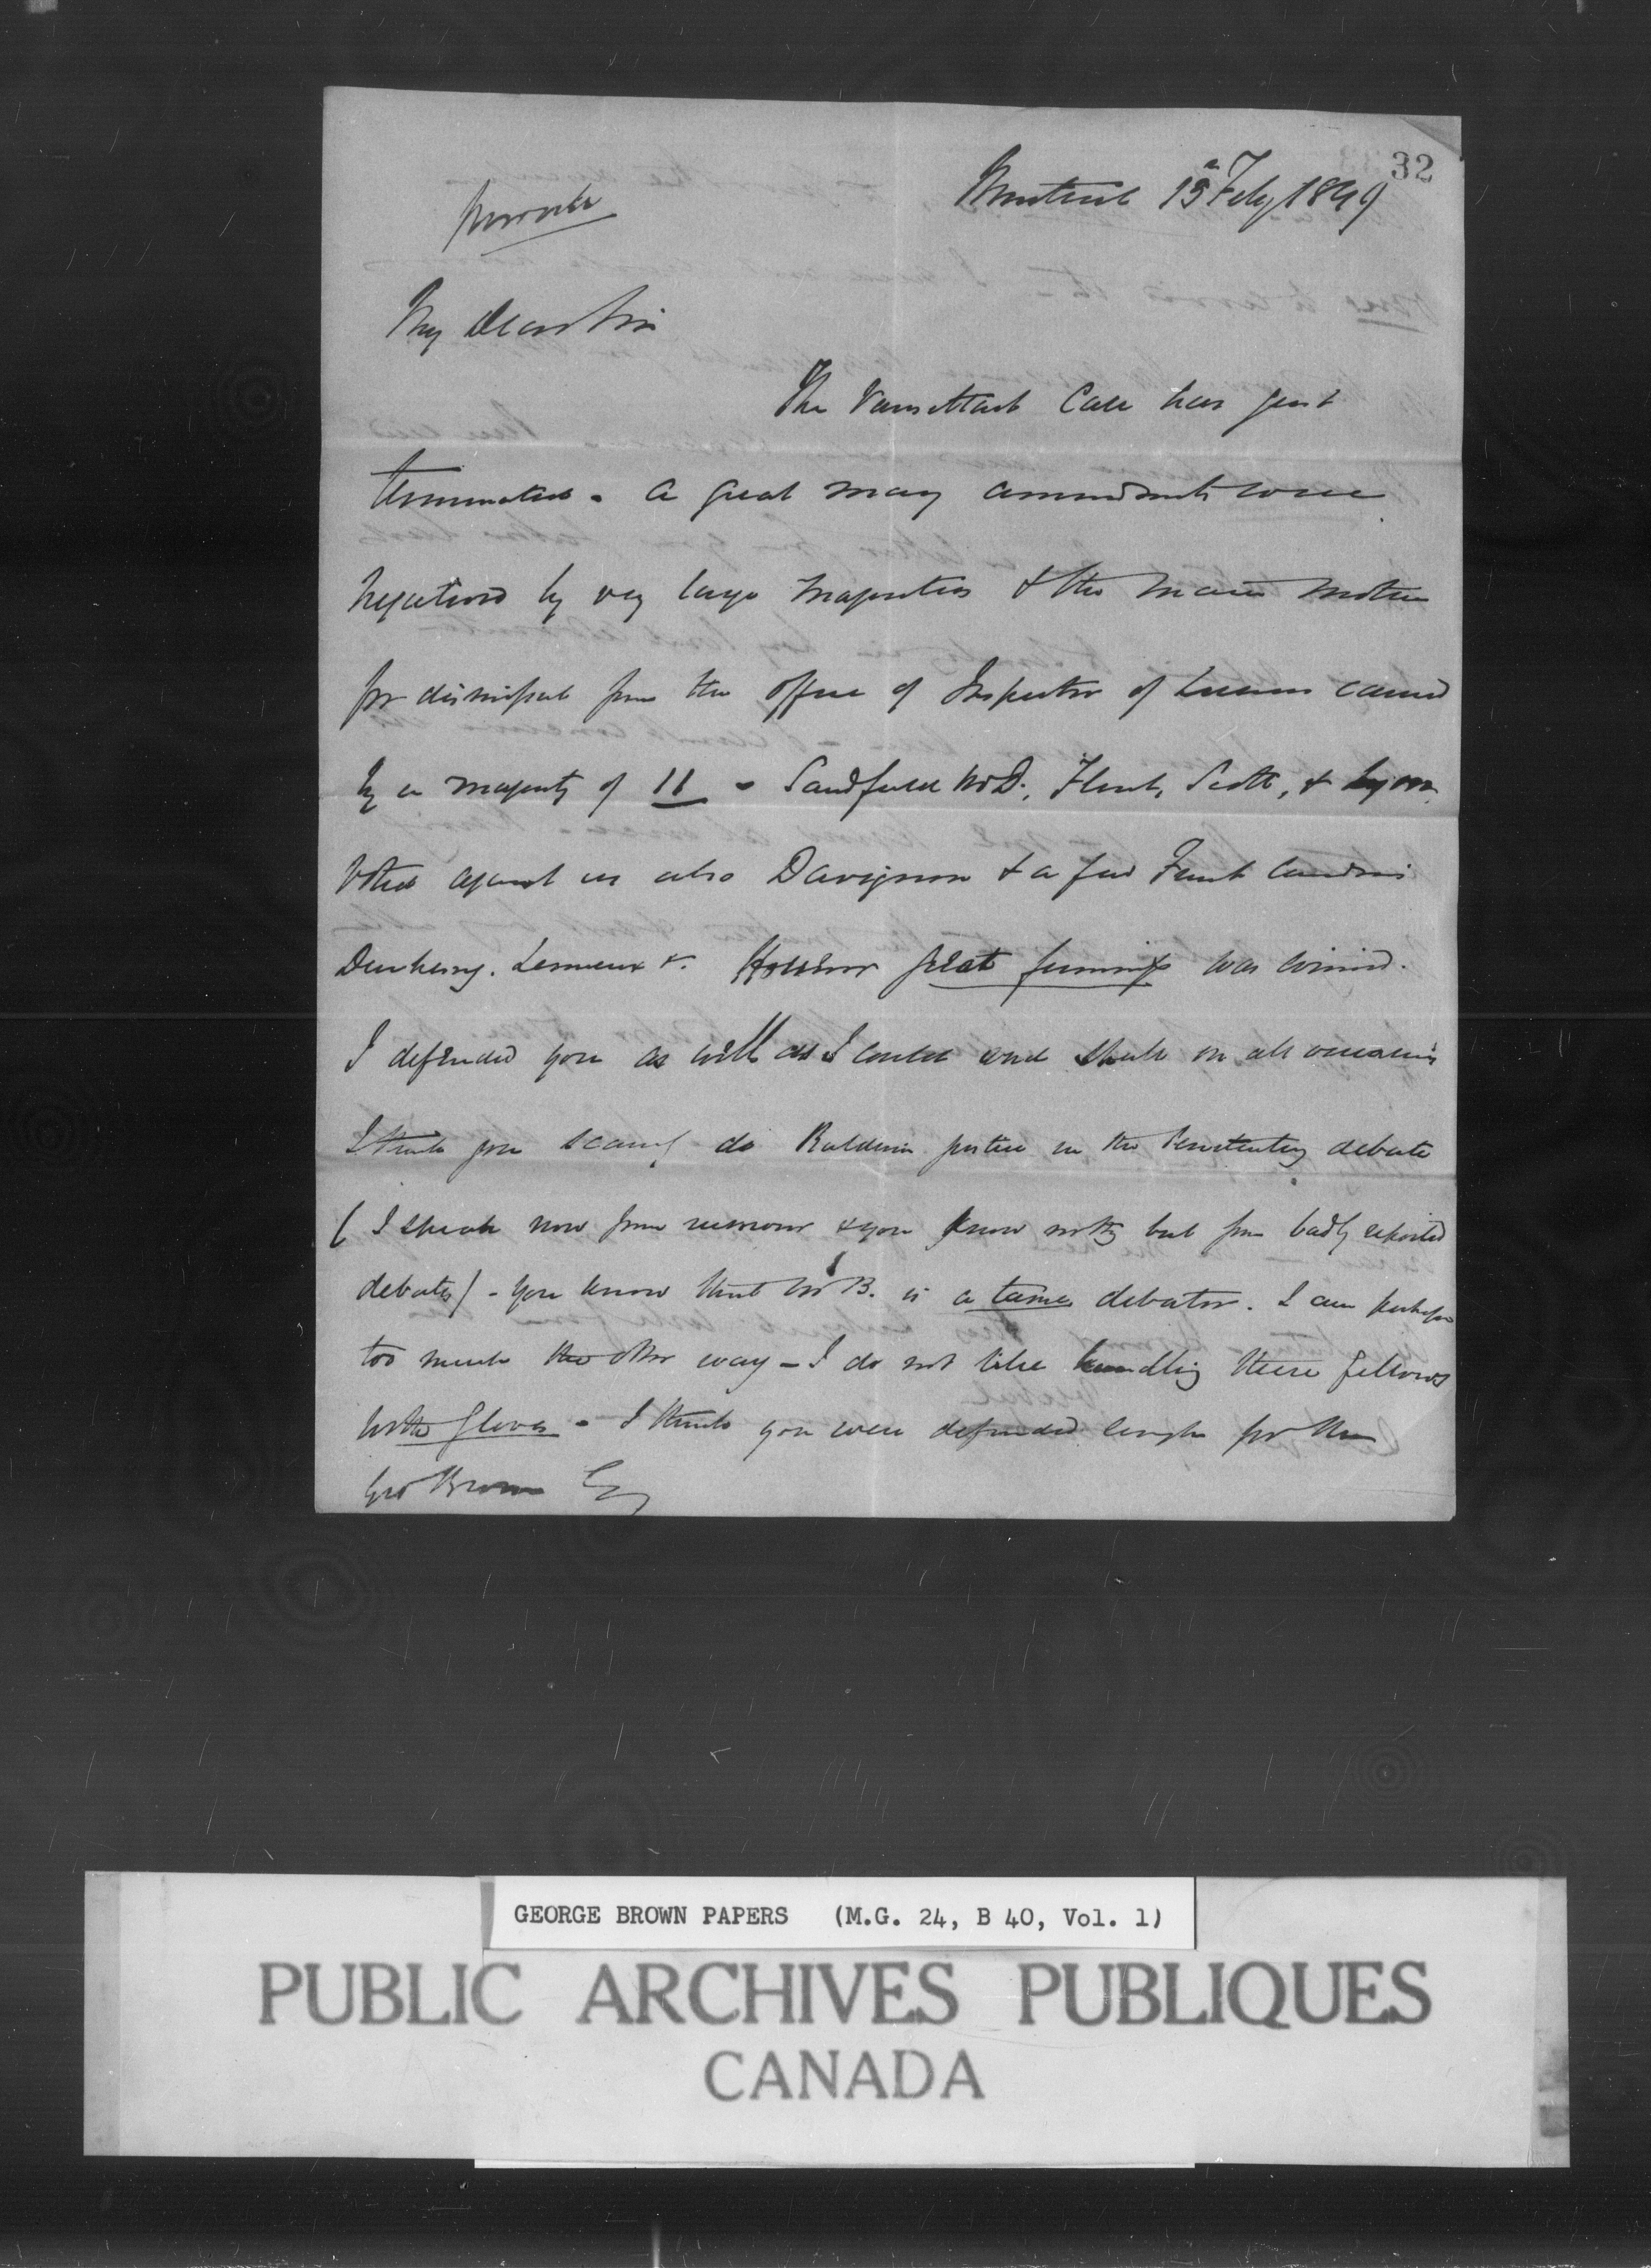 32
Montreal 15 Feby 1849
Private
My Dear Sir
The Vansittart Case has just
terminated - a great many amendments were
negatived by very large majorities & the main motion
for dismissal from the office of Inspector of Licenses carried
by a majority of 11 - Sandfield McD., Flint, Scott, & Lyon
voted against us also Davignon & a few French Canadians
Duchesnay. Lemieux &.
great was
I defended you as well as I could and shall on all occasions
I think you scarcely do Baldwin justice in the Penitentiary debate
( I speak now from rumour & you know nothg but from badly reported
debates) - you know that Mr B. is a tame debator. I am perhaps
too much the other way - I do not like handling these fellows
with gloves - I think you were defended enough for the
Geo Brown Esq
GEORGE BROWN PAPERS (M.G. 24, B 40, Vol. 1)
PUBLIC ARCHIVES PUBLIQUES
CANADA